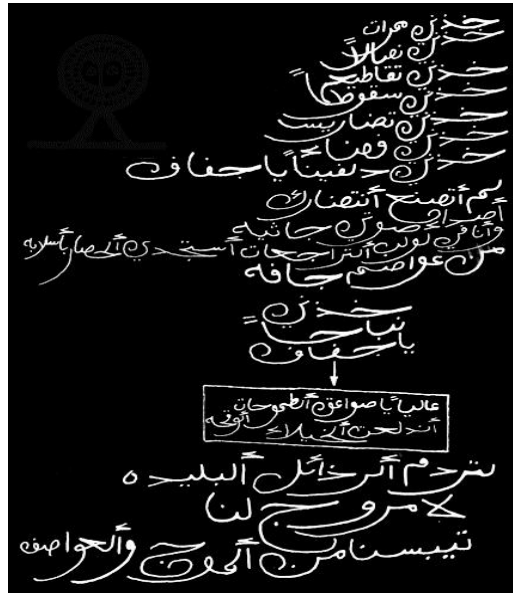 خذني ممرات
خذني نصالاً
خذني تقاطيع
خذني سقوطاً
خذني تضاريس
خذني وهنا
خذني دفيناً يا جفاف
لم أتصنع أنتضارك
أصداف صوتي جاثيه
وأنا في لولب ألتراجعات أستجدي ألحصار بأسلابه
من عواصم جافه
خذني
نباحاً
يا جفاف
عالياً يا صواعق ألطموحات ألوقحه
أندلعت ألخيلاء
لتردم ألرذائل ألبليده
لا مروج لنا
تيبسنا من ألموج وألعواصف